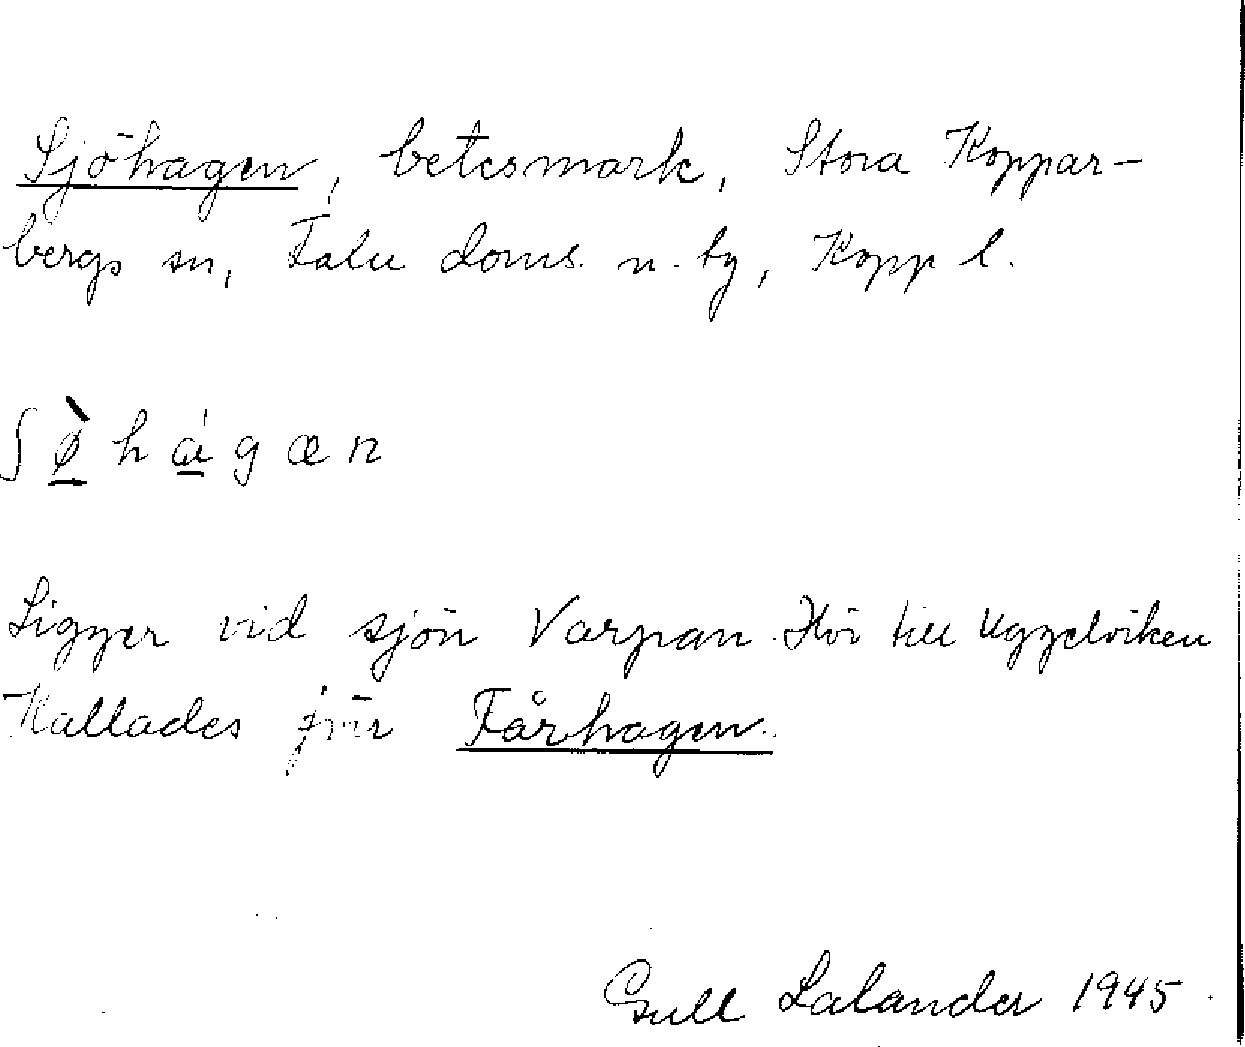 Sjöhagen, betesmark, Stora Koppar-
bergs sn, Falu doms. n. by, Kopp l.
ʃø̠̀há̠gæn
Ligger vid sjön Varpan. Hör till Uggelviken
Kallades förr Fårhagen.
Gull Lalander 1945.